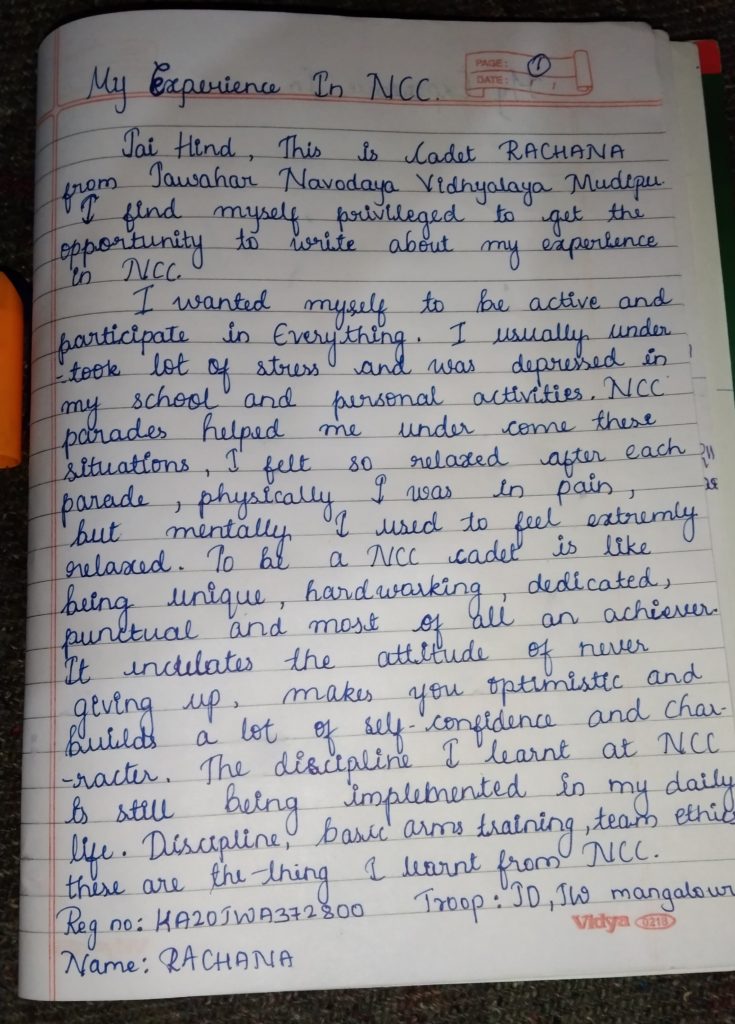 PAGE: 1
DATE:
My Experience In NCC.
Jai Hind, This is Cadet RACHANA
from Jawahar Navodaya Vidhyalaya Mudipu.
I find myself privileged to get the
opportunity to write about my experience
in NCC.
I wanted myself to be active and
participate in Everything. I usually under
-took lot of stress and was depressed in
my school and personal activities. NCC
parades helped me under come these
situations, I felt so relaxed after each
parade, physically I was in pain,
but mentally I used to feel extremly
relaxed. To be a NCC cadet is like
being unique, hardworking, dedicated,
punctual and most of all an achiever.
It inculates the attitude of never
giving up, makes you optimistic and
builds a lot of self-confidence and char-
-racter. The discipline I learnt at NCC
is still being implemented in my daily
life. Discipline, basic arms training, team ethics
these are the thing I learnt from NCC.
Reg no: KA20JWA372800 Troop: JD, JW mangalour
Name: RACHANA
Vidya 0218